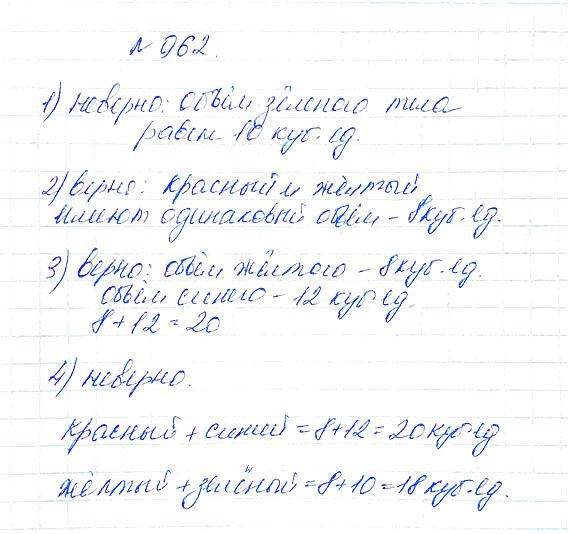 № 962.
1) неверно: объём зёленого тела
равен 10 куб. ед.
2) верно: красный и жёлтый
имеют одинаковый объём – 8 куб. ед.
3) верно: объём жёлтого – 8 куб. ед.
объём синего – 12 куб. ед.
8 + 12 = 20
4) неверно.
красный + синий = 8 + 12 = 20 куб. ед
жёлтый + зелёный = 8 + 10 = 18 куб. ед.